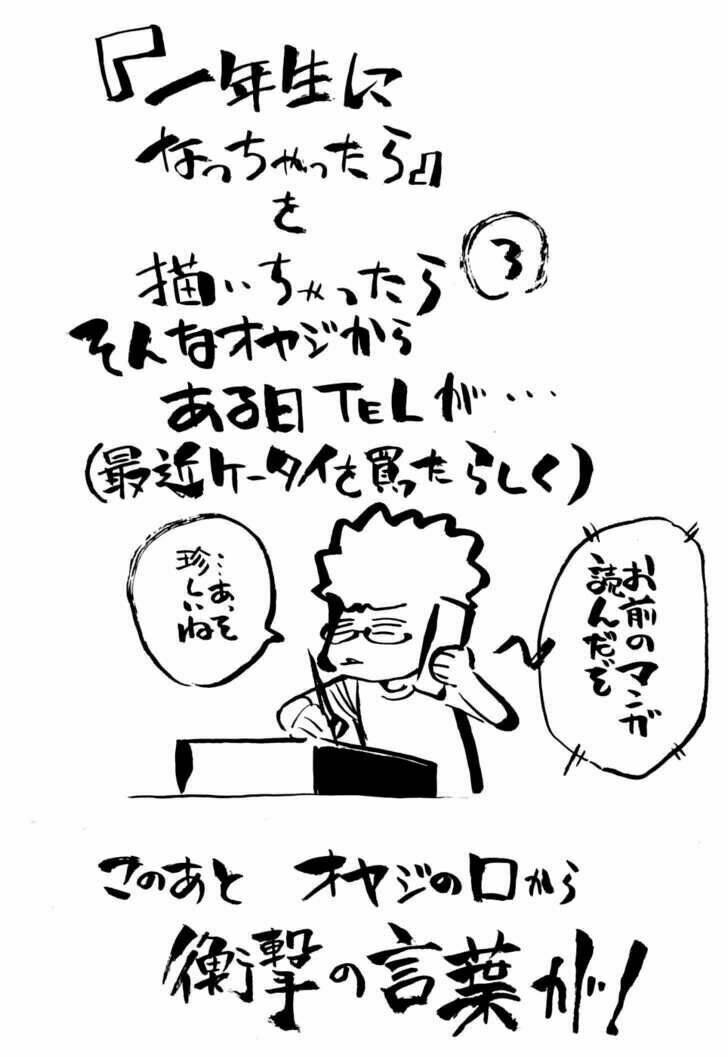 『一年生に
なっちゃったら』
を
描いちゃったら ③
そんなオヤジから
ある日TELが…
(最近ケータイを買ったらしく)
お前のマンガ
読んだぞ
…あ、そ
珍しいね
このあと オヤジの口から
衝撃の言葉が!